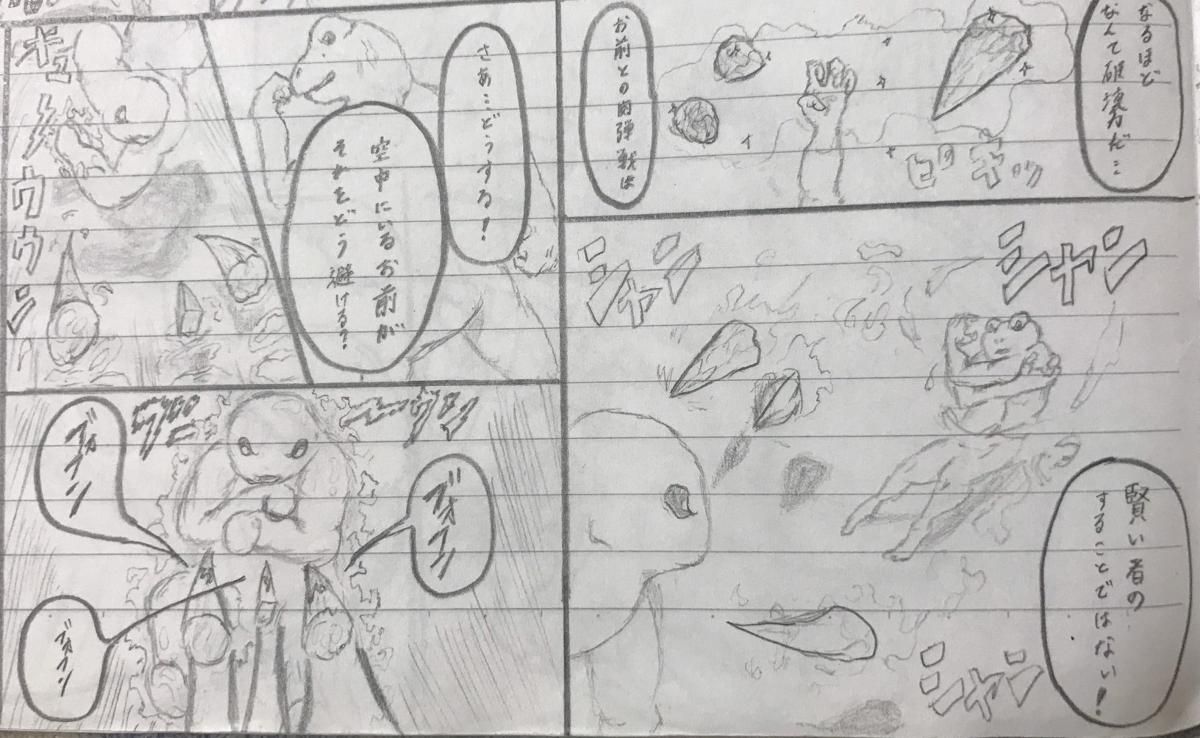 なるほど
なんて破壊力だ…
ピキッ
お前との肉弾戦は
シャン
シャン
賢い者の
することではない!
シャン
さあ…どうする!
空中にいるお前が
それをどう避ける?
ブォン
ブォン
ブォン